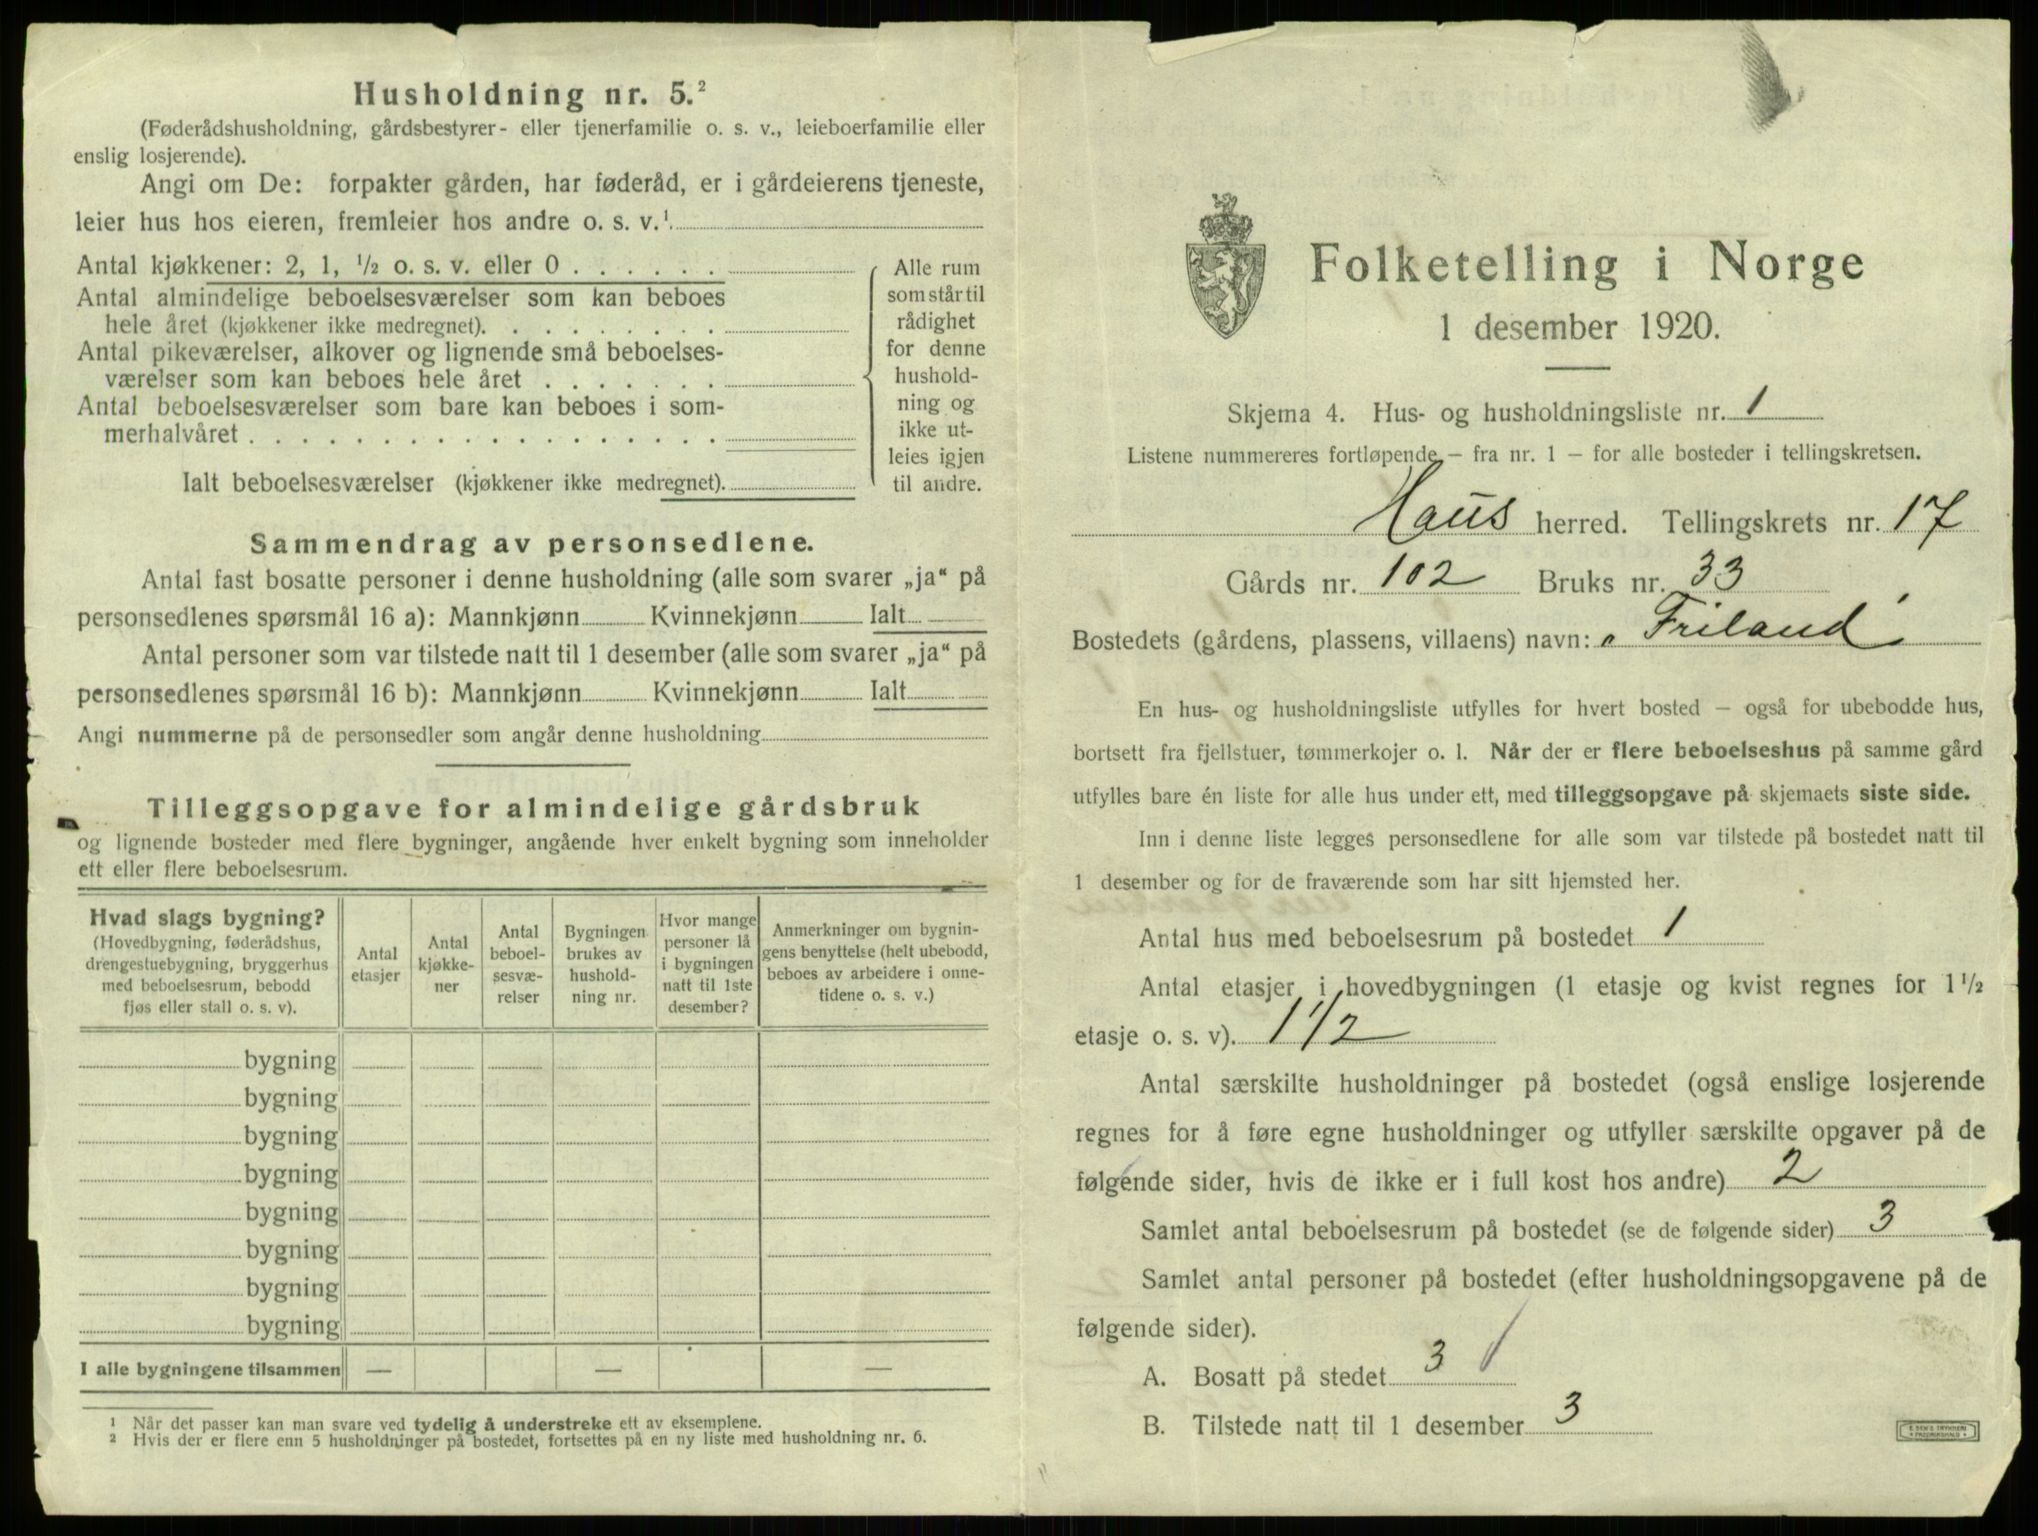 Husholdning nr. 5.²
(Føderådshusholdning, gårdsbestyrer- eller tjenerfamilie o. s. v., leieboerfamilie eller
enslig losjerende).
Angi om De: forpakter gården, har føderåd, er i gårdeierens tjeneste,
leier hus hos eieren, fremleier hos andre o. s. v.¹
Antal kjøkkener: 2, 1, ½ o. s. v. eller 0 . . . . . .
Antal almindelige beboelsesværelser som kan beboes
hele året (kjøkkener ikke medregnet). . . . . . . . .
Antal pikeværelser, alkover og lignende små beboelses-
værelser som kan beboes hele året . . . . . . .
Antal beboelsesværelser som bare kan beboes i som-
merhalvåret . . . . . . . . . . . . . . . . . .
Ialt beboelsesværelser (kjøkkener ikke medregnet).
Alle rum
som står til
rådighet
for denne
hushold-
ning og
ikke ut-
leies igjen
til andre.
Sammendrag av personsedlene.
Antal fast bosatte personer i denne husholdning (alle som svarer „ja“ på
personsedlenes spørsmål 16 a): Mannkjønn Kvinnekjønn Ialt
Antal personer som var tilstede natt til 1 desember (alle som svarer „ja“ på
personsedlenes spørsmål 16 b): Mannkjønn Kvinnekjønn Ialt
Angi nummerne på de personsedler som angår denne husholdning
Tilleggsopgave for almindelige gårdsbruk
og lignende bosteder med flere bygninger, angående hver enkelt bygning som inneholder
ett eller flere beboelsesrum.
Hvad slags bygning?
(Hovedbygning, føderådshus,
drengestuebygning, bryggerhus
med beboelsesrum, bebodd
fjøs eller stall o. s. v).
Antal
etasjer
Antal
kjøkke-
ner
Antal
beboel-
sesvæ-
relser
Bygningen
brukes av
hushold-
ning nr.
Hvor mange
personer lå
i bygningen
natt til 1ste
desember?
Anmerkninger om bygnin-
gens benyttelse (helt ubebodd,
beboes av arbeidere i onne-
tidene o. s. v.)
bygning
bygning
bygning
bygning
bygning
bygning
bygning
bygning
I alle bygningene tilsammen — — —
¹ Når det passer kan man svare ved tydelig å understreke ett av eksemplene.
² Hvis der er flere enn 5 husholdninger på bostedet, fortsettes på en ny liste med husholdning nr. 6.
Folketelling i Norge
1 desember 1920.
Skjema 4. Hus- og husholdningsliste nr. 1
Listene nummereres fortløpende – fra nr. 1 – for alle bosteder i tellingskretsen.
Haus herred. Tellingskrets nr. 17
Gårds nr. 102 Bruks nr. 33
Bostedets (gårdens, plassens, villaens) navn: Friland
En hus- og husholdningsliste utfylles for hvert bosted – også for ubebodde hus,
bortsett fra fjellstuer, tømmerkojer o. l. Når der er flere beboelseshus på samme gård
utfylles bare én liste for alle hus under ett, med tilleggsopgave på skjemaets siste side.
Inn i denne liste legges personsedlene for alle som var tilstede på bostedet natt til
1 desember og for de fraværende som har sitt hjemsted her.
Antal hus med beboelsesrum på bostedet 1
Antal etasjer i hovedbygningen (1 etasje og kvist regnes for 1½
etasje o. s. v). 1 1/2
Antal særskilte husholdninger på bostedet (også enslige losjerende
regnes for å føre egne husholdninger og utfyller særskilte opgaver på de
følgende sider, hvis de ikke er i full kost hos andre) 2
Samlet antal beboelsesrum på bostedet (se de følgende sider) 3
Samlet antal personer på bostedet (efter husholdningsopgavene på de
følgende sider).
A. Bosatt på stedet 3
B. Tilstede natt til 1 desember 3